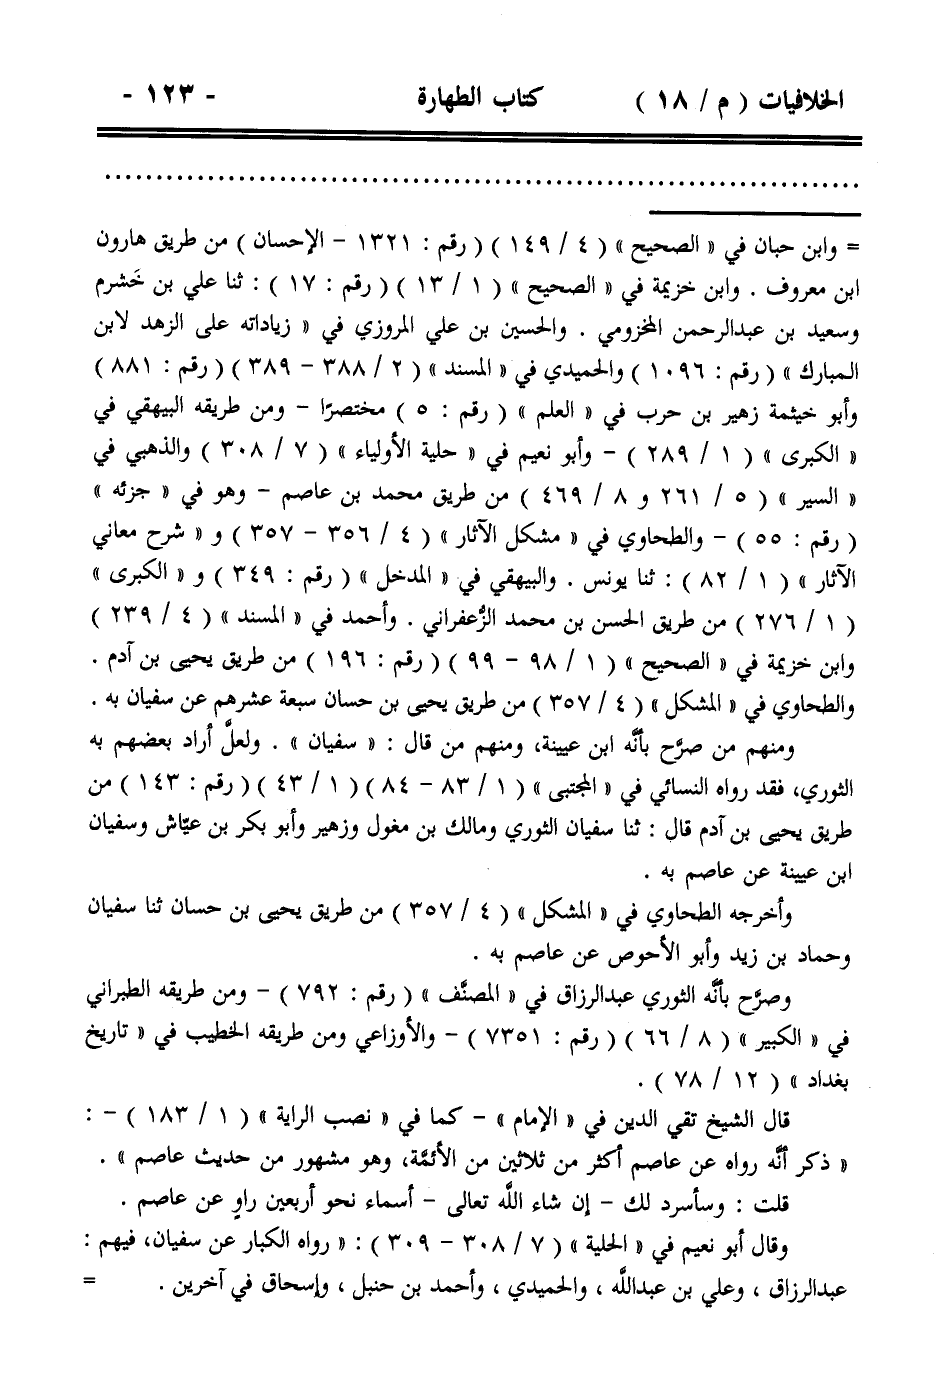 الخلافيات ( م / ١٨ ) كتاب الطهارة - ١٢٣ -
................................................................................
= وابن حبان في « الصحيح » ( ٤ / ١٤٩ ) ( رقم : ١٣٢١ - الإحسان ) من طريق هارون
ابن معروف . وابن خزيمة في « الصحيح » ( ١ / ١٣ ) ( رقم : ١٧ ) : ثنا علي بن خَشرم
وسعيد بن عبدالرحمن المخزومي . والحسين بن علي المروزي في « زياداته على الزهد لابن
المبارك » ( رقم : ١٠٩٦ ) والحميدي في « المسند » ( ٢ / ٣٨٨ - ٣٨٩ ) ( رقم : ٨٨١ )
وأبو خيثمة زهير بن حرب في « العلم » ( رقم : ٥ ) مختصرًا - ومن طريقه البيهقي في
« الكبرى » ( ١ / ٢٨٩ ) - وأبو نعيم في « حلية الأولياء » ( ٧ / ٣٠٨ ) والذهبي في
« السير » ( ٥ / ٢٦١ و ٨ / ٤٦٩ ) من طريق محمد بن عاصم - وهو في « جزئه »
( رقم : ٥٥ ) - والطحاوي في « مشكل الآثار » ( ٤ / ٣٥٦ - ٣٥٧ ) و « شرح معاني
الآثار » ( ١ / ٨٢ ) : ثنا يونس . والبيهقي في « المدخل » ( رقم : ٣٤٩ ) و « الكبرى »
( ١ / ٢٧٦ ) من طريق الحسن بن محمد الزَّعفراني . وأحمد في « المسند » ( ٤ / ٢٣٩ )
وابن خزيمة في « الصحيح » ( ١ / ٩٨ - ٩٩ ) ( رقم : ١٩٦ ) من طريق يحيى بن آدم .
والطحاوي في « المشكل » ( ٤ / ٣٥٧ ) من طريق يحيى بن حسان سبعة عشرهم عن سفيان به .
ومنهم من صرَّح بأنَّه ابن عيينة، ومنهم من قال : « سفيان » . ولعلَّ أراد بعضهم به
الثوري، فقد رواه النسائي في « المجتبى » ( ١ / ٨٣ - ٨٤ ) ( ١ / ٤٣ ) ( رقم : ١٤٣ ) من
طريق يحيى بن آدم قال : ثنا سفيان الثوري ومالك بن مغول وزهير وأبو بكر بن عيّاش وسفيان
ابن عيينة عن عاصم به .
وأخرجه الطحاوي في « المشكل » ( ٤ / ٣٥٧ ) من طريق يحيى بن حسان ثنا سفيان
وحماد بن زيد وأبو الأحوص عن عاصم به .
وصرَّح بأنَّه الثوري عبدالرزاق في « المصنَّف » ( رقم : ٧٩٢ ) - ومن طريقه الطبراني
في « الكبير » ( ٨ / ٦٦ ) ( رقم : ٧٣٥١ ) - والأوزاعي ومن طريقه الخطيب في « تاريخ
بغداد » ( ١٢ / ٧٨ ) .
قال الشيخ تقي الدين في « الإمام » - كما في « نصب الراية » ( ١ / ١٨٣ ) - :
« ذكر أنَّه رواه عن عاصم أكثر من ثلاثين من الأئمَّة، وهو مشهور من حديث عاصم » .
قلت : وسأسرد لك - إن شاء اللَّه تعالى - أسماء نحو أربعين راوٍ عن عاصم .
وقال أبو نعيم في « الحلية » ( ٧ / ٣٠٨ - ٣٠٩ ) : « رواه الكبار عن سفيان، فيهم :
عبدالرزاق ، وعلي بن عبداللَّه ، والحميدي ، وأحمد بن حنبل ، وإسحاق في آخرين . =